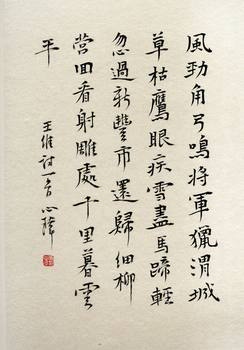 風勁角弓鳴將軍獵渭城
草枯鷹眼疾雪盡馬蹄輕
忽過新豐市還歸細柳
營回看射雕處千里暮雲
平
王維詩一首